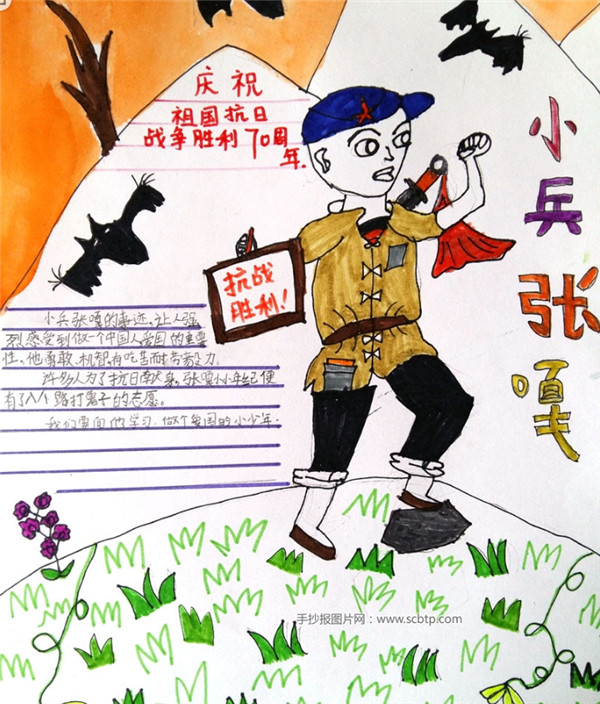 庆祝
祖国抗日
战争胜利70周
年.
小兵张嘎
抗战
胜利!
小兵张嘎的事迹,让人强
烈感受到做一个中国人爱国的重要
性。他勇敢、机智,有吃苦耐劳毅力。
许多人为了抗日献身。张嘎小小年纪便
有了入八路打鬼子的志愿。
我们要向他学习,做个爱国的小少年.
手抄报图片网:www.scbtp.com